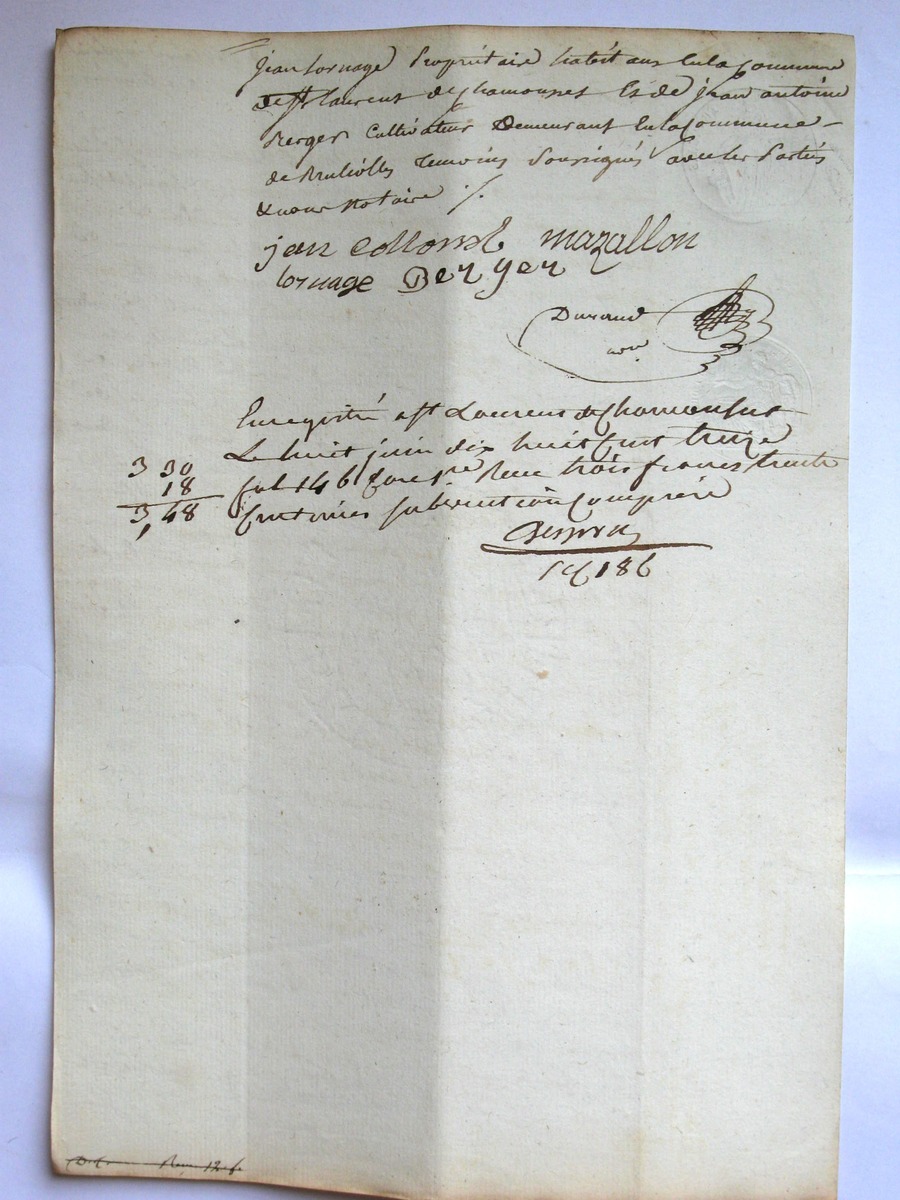 jean Lornage Propriétaire habitans En la Commune
de St Laurent de Chamousses Et de jean antoine
Berger Cultivateur Demeurant En la Commune
de Brulioles Temoins Soussignés avec les Parties
& nous Notaire ./.
jean collomb mazallon
lornage Berger
Durand
nre
Enregistré a St Laurent de Chamousset
Le huit juin dix huit Cent treize
3 30
fol 146 Case 1re Recu trois francs trente
18
3,48
Centimes subvention Comprise
186